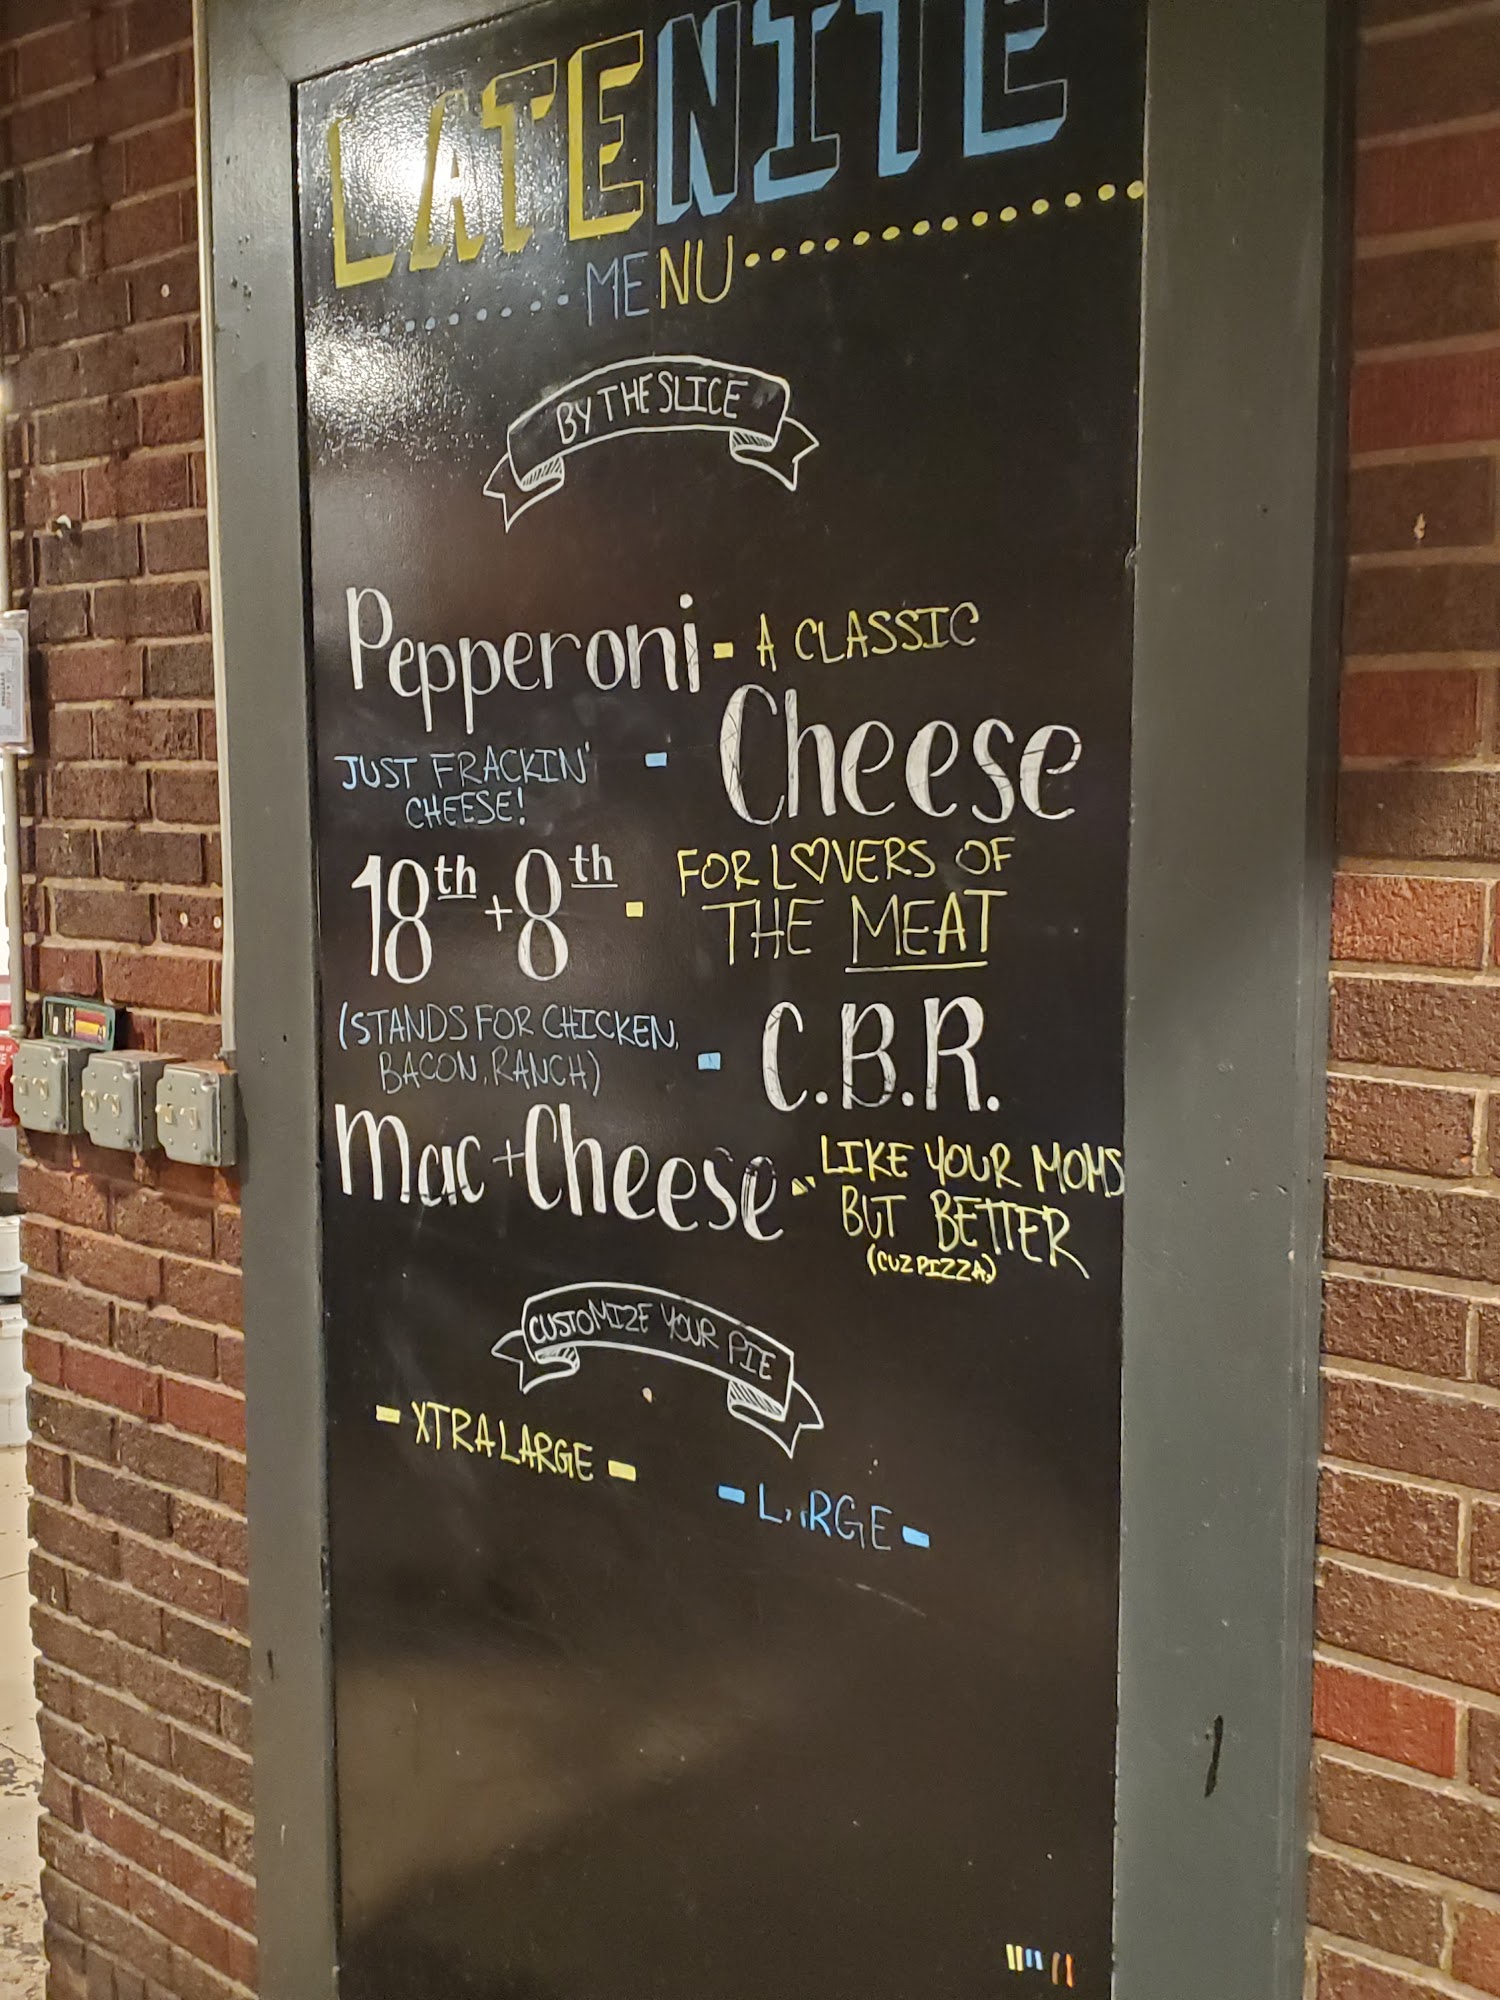 LATENITE
MENU
BY THE SLICE
Pepperoni - A CLASSIC
JUST FRACKIN' - Cheese
CHEESE!
18th + 8th - FOR LOVERS OF
THE MEAT
(STANDS FOR CHICKEN, - C.B.R.
BACON, RANCH)
Mac + Cheese - LIKE YOUR MOMS
BUT BETTER
(CUZ PIZZA)
CUSTOMIZE YOUR PIE
- XTRA LARGE -
- LARGE -